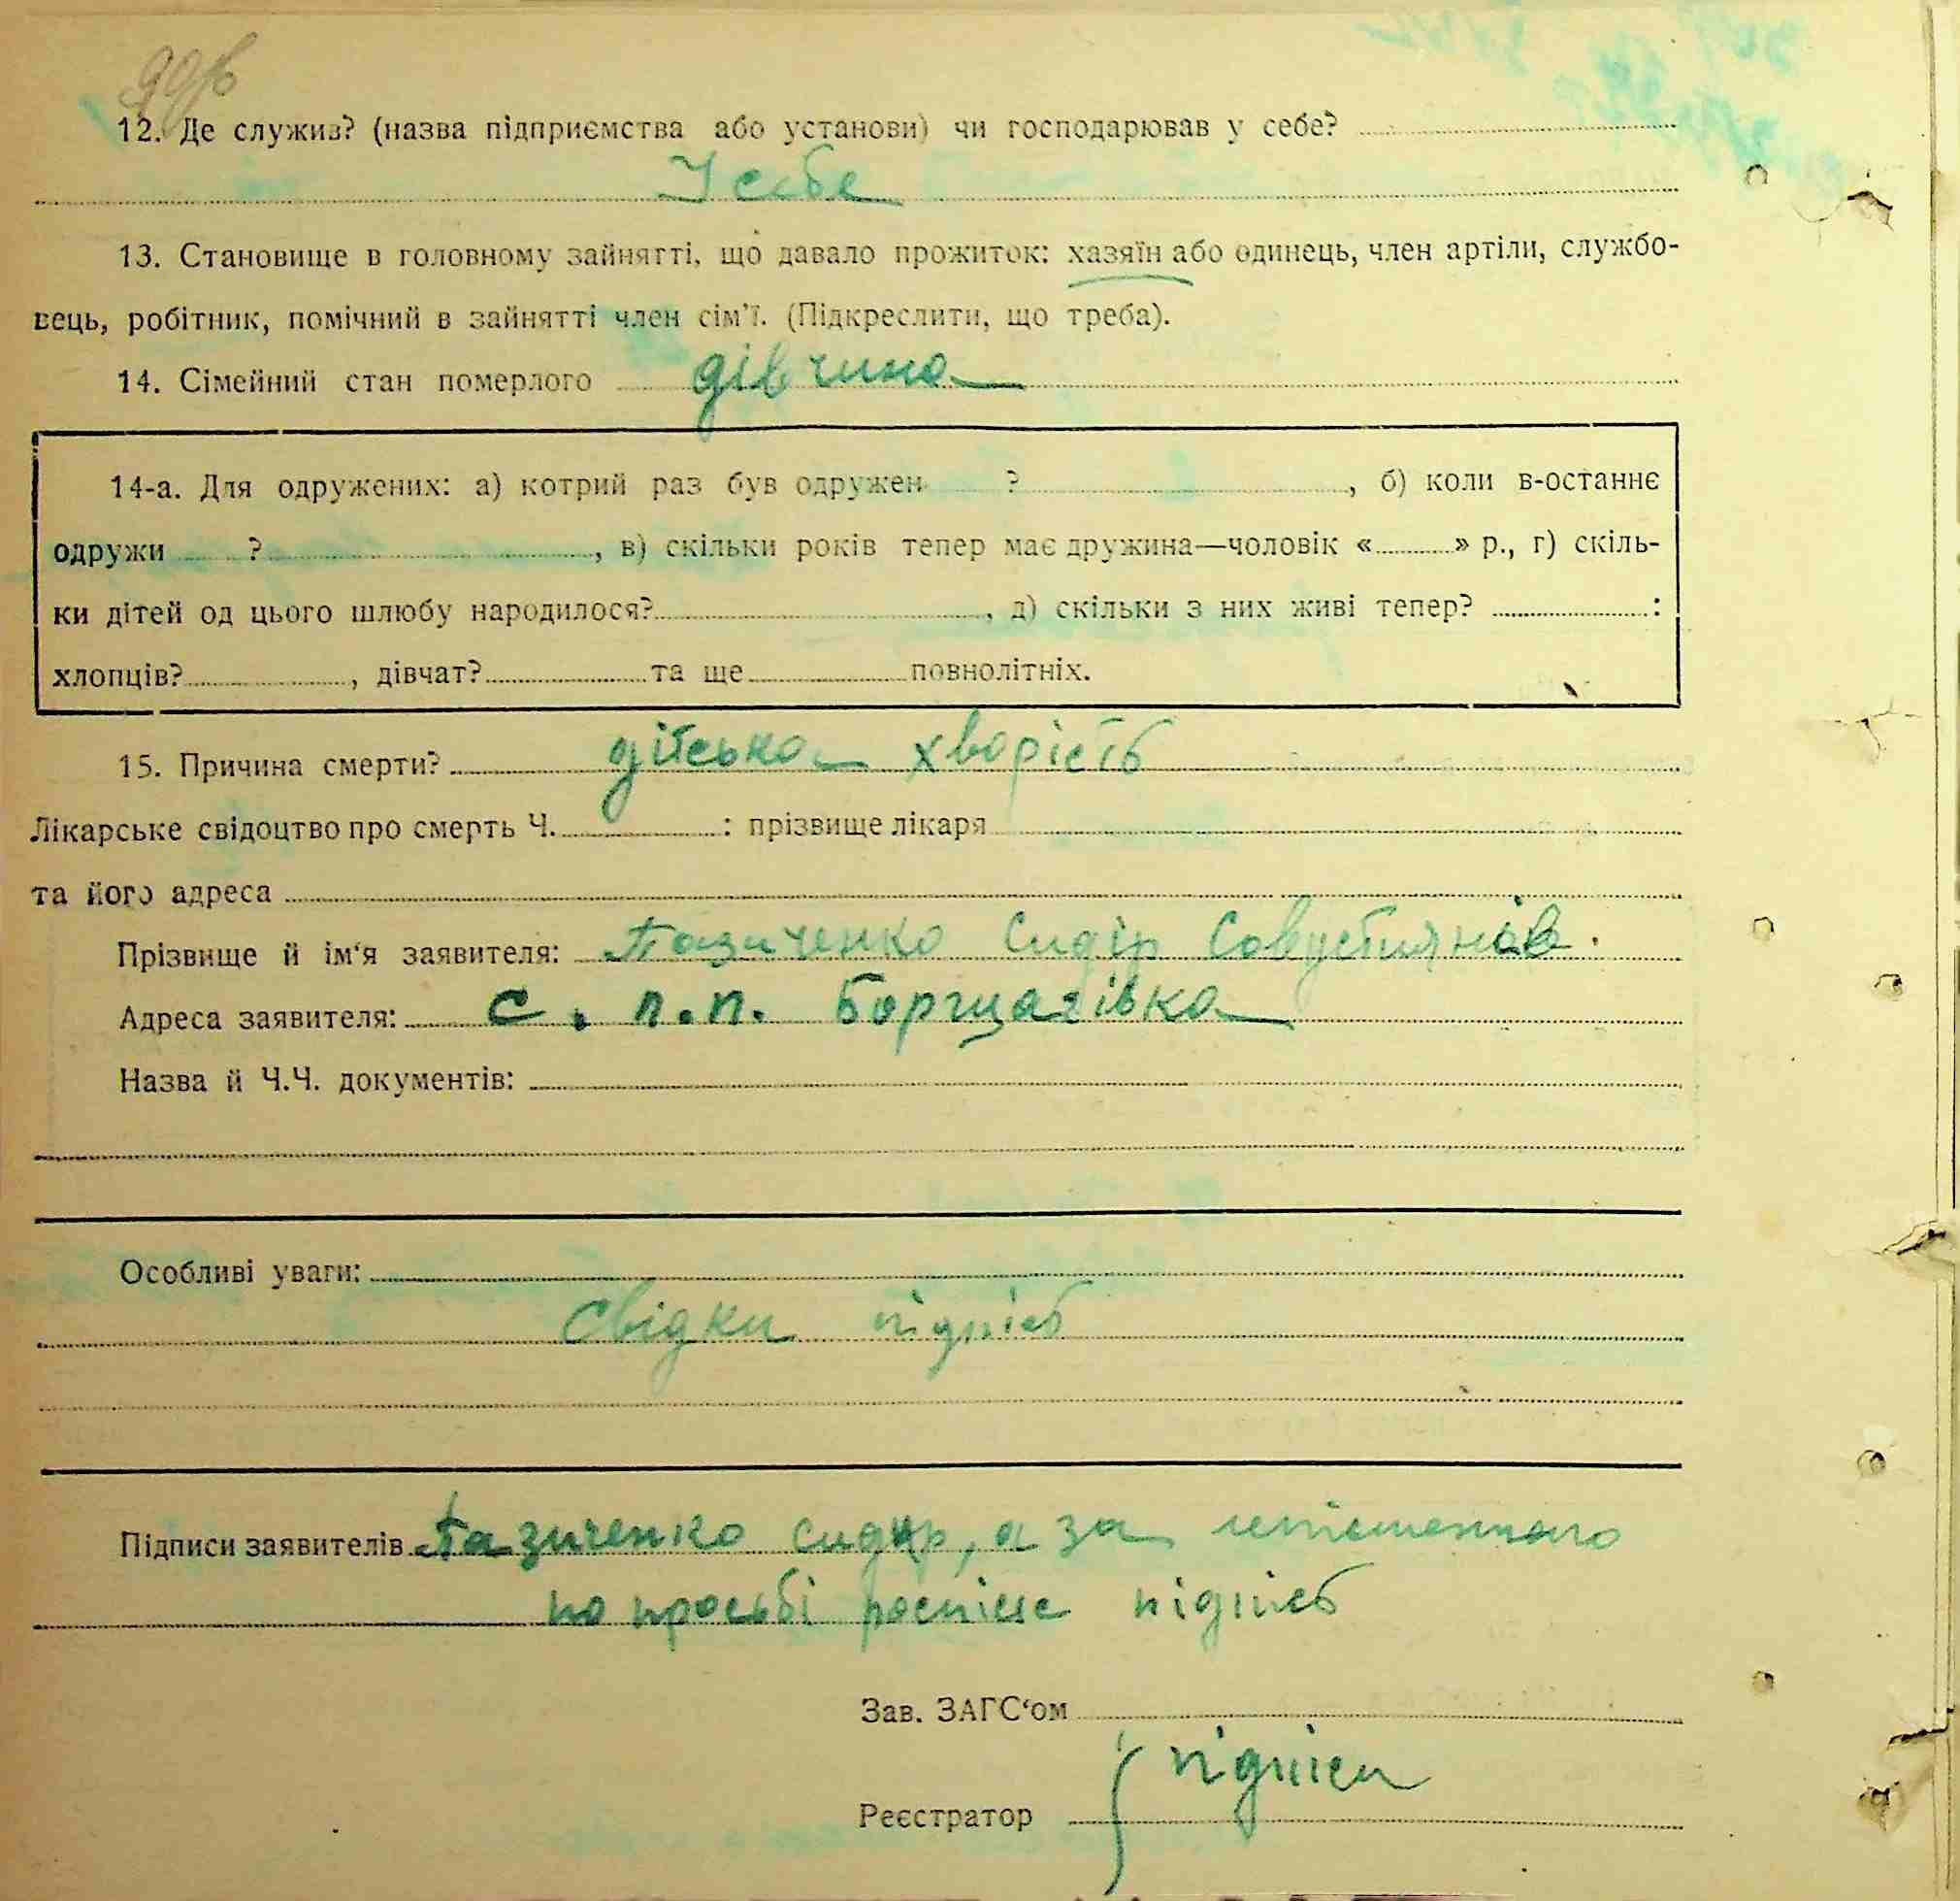 12. Де служив? (назва підприємства або установи) чи господарював у себе?
У себе
13. Становище в головному зайнятті, що давало прожиток: хазяїн або одинець, член артіли, службо-
вець, робітник, помічний в зайнятті член сім'ї. (Підкреслити, що треба).
14. Сімейний стан померлого дівчина
14-а. Для одружених: а) котрий раз був одружен ? , б) коли в-останнє
одружи ? , в) скільки років тепер має дружина—чоловік « » р., г) скіль-
ки дітей од цього шлюбу народилося? , д) скільки з них живі тепер? :
хлопців? , дівчат? та ще повнолітніх.
15. Причина смерти? дітська хворість
Лікарське свідоцтво про смерть Ч. : прізвище лікаря
та його адреса
Прізвище й ім'я заявителя: Пазиченко Сидір Савустиянів.
Адреса заявителя: с. п.п. Борщагівка
Назва й Ч.Ч. документів:
Особливі уваги:
Свідки підпісь
Підписи заявителів Пазиченко сидир, а за
по просьбі росписе підпісь
Зав. ЗАГС'ом
підписи
Реєстратор